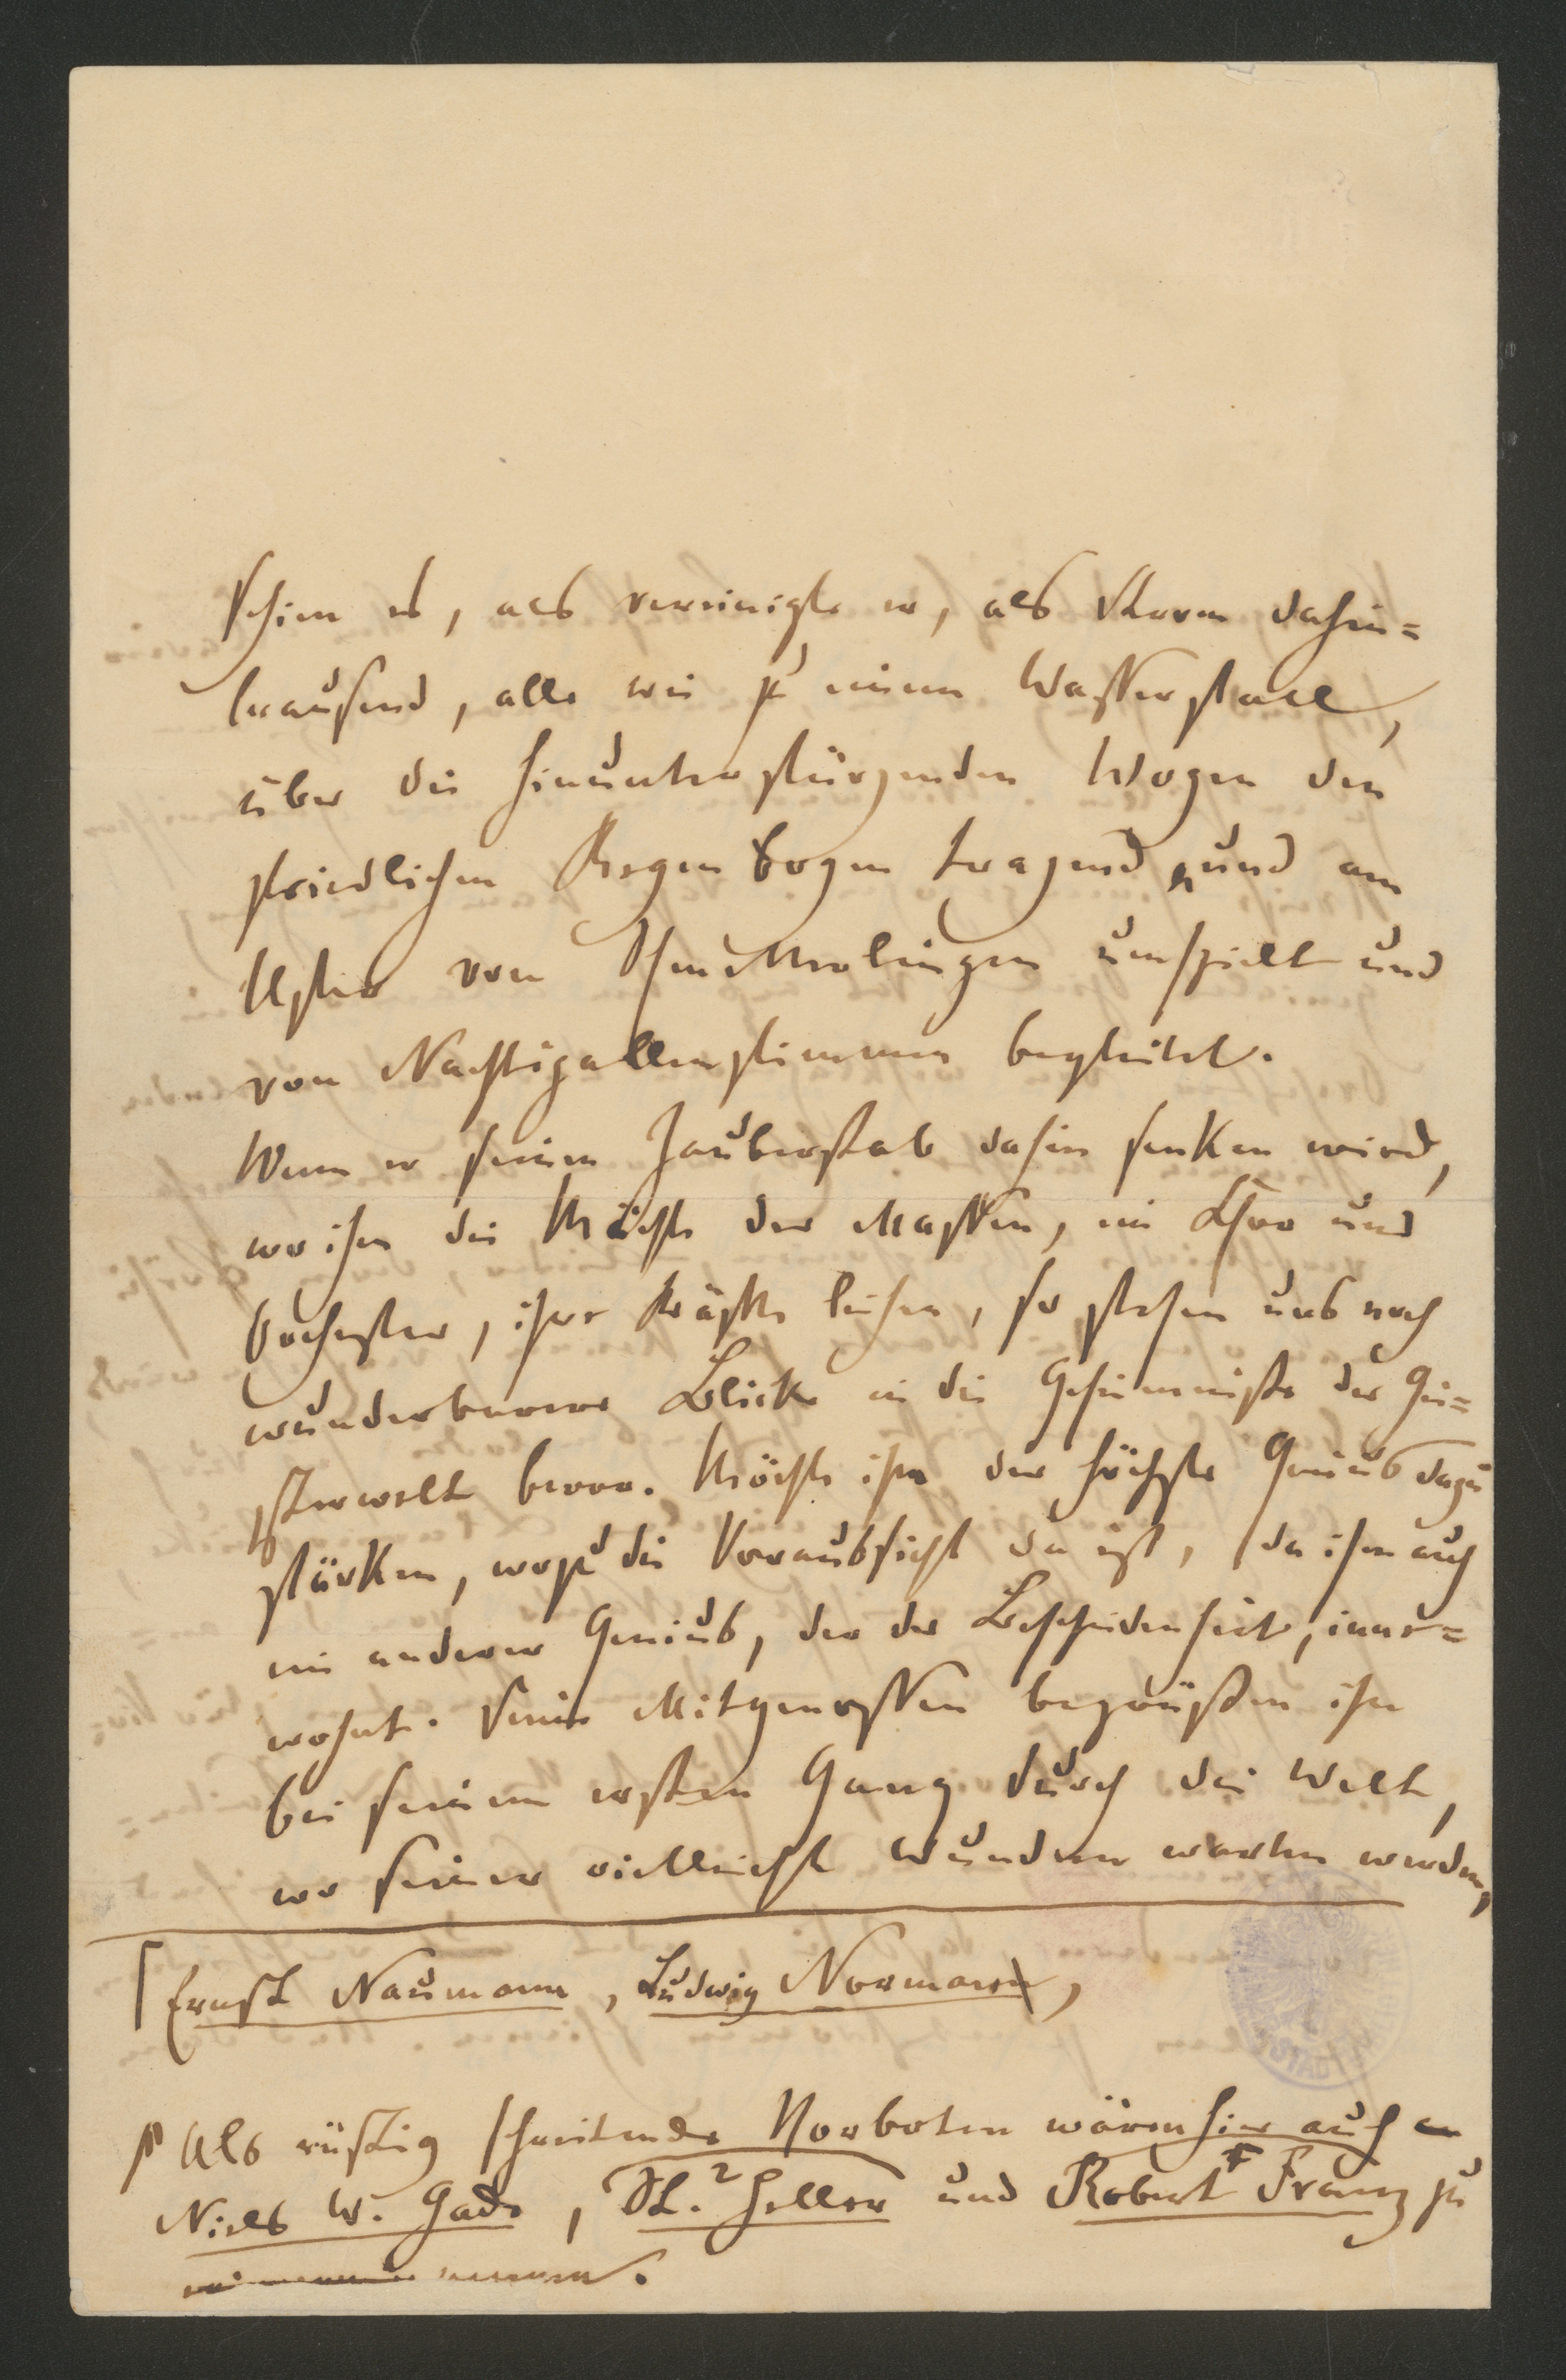 schien es, als vereinigte er, als Strom dahin=
brausend, alle wie zu einem Wasserfall,
über die hinunterstürzenden Wogen den
friedlichen Regenbogen tragend und am
Ufer von Schmetterlingen umspielt und
von Nachtigallenstimmen begleitet.
Wenn er seinen Zauberstab dahin senken wird,
wo ihm die Mächte der Massen, im Chor und
Orchester, ihre Kräfte leihen, so stehen uns noch
wunderbarere Blicke in die Geheimnisse der Gei=
sterwelt bevor. Möchte ihn der höchste Genius dazu
stärken, wozu die Voraussicht da ist, da ihm auch
ein anderer Genius, der der Bescheidenheit, inne=
wohnt. Seine Mitgenossen begrüßen ihn
bei seinem ersten Gang durch die Welt,
wo seiner vielleicht Wunden warten werden,
Ernst Naumann, Ludwig Norman,
Als rüstig schreitende Vorboten wären hier auch
Niels W. Gade, St. Heller und Robert F Franz zu
nennen.